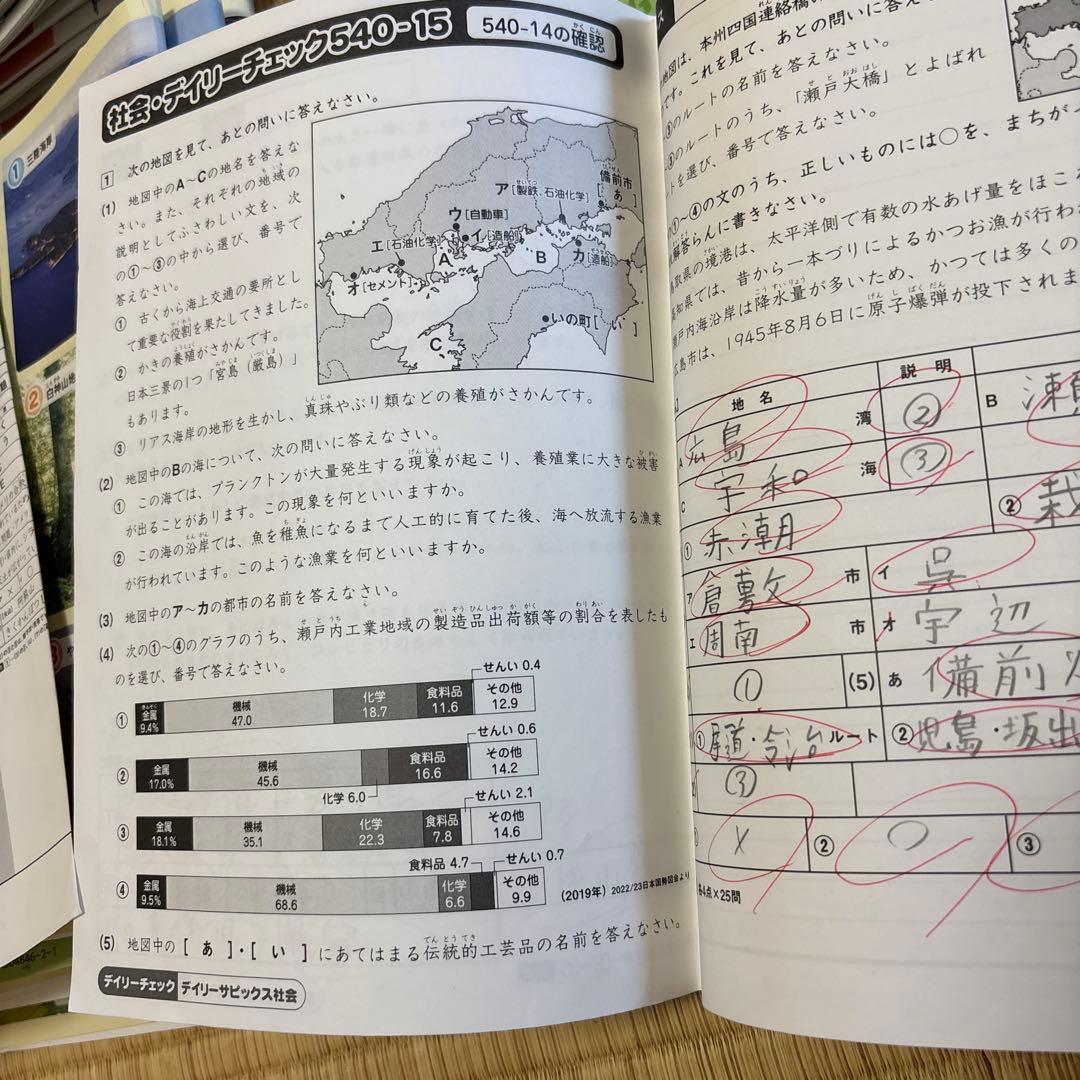 社会・デイリーチェック540-15
540-14の確認
1 次の地図を見て、あとの問いに答えなさい。
(1) 地図中のA〜Cの地名を答えな
さい。また、それぞれの地域の
説明としてふさわしい文を、次
の①〜③の中から選び、番号で
答えなさい。
① 古くから海上交通の要所とし
て重要な役割を果たしてきました。
② かきの養殖がさかんです。
日本三景の1つ「宮島（厳島）」
もあります。
③ リアス海岸の地形を生かし、真珠やぶり類などの養殖がさかんです。
備前市
[あ]
ア[製鉄、石油化学]
ウ[自動車]
イ[造船]
エ[石油化学]
A
B
カ[造船]
オ[セメント]
いの町[い]
C
(2) 地図中のBの海について、次の問いに答えなさい。
① この海では、プランクトンが大量発生する現象が起こり、養殖業に大きな被害
が出ることがあります。この現象を何といいますか。
② この海の沿岸では、魚を稚魚になるまで人工的に育てた後、海へ放流する漁業
が行われています。このような漁業を何といいますか。
(3) 地図中のア〜カの都市の名前を答えなさい。
(4) 次の①〜④のグラフのうち、瀬戸内工業地域の製造品出荷額等の割合を表したも
のを選び、番号で答えなさい。
せんい 0.4
① 金属 9.4% 機械 47.0 化学 18.7 食料品 11.6 その他 12.9
せんい 0.6
② 金属 17.0% 機械 45.6 食料品 16.6 その他 14.2
化学 6.0
せんい 2.1
③ 金属 18.1% 機械 35.1 化学 22.3 食料品 7.8 その他 14.6
食料品 4.7 せんい 0.7
④ 金属 9.5% 機械 68.6 化学 6.6 その他 9.9
(2019年) 2022/23日本国勢図会より
(5) 地図中の[あ]・[い]にあてはまる伝統的工芸品の名前を答えなさい。
デイリーチェック デイリーサピックス社会
地図は、本州四国連絡橋の
です。これを見て、あとの問いに答え
のルートの名前を答えなさい。
のルートのうち、「瀬戸大橋」とよばれ
トを選び、番号で答えなさい。
の①〜④の文のうち、正しいものには○を、まちが
解答らんに書きなさい。
取県の境港は、太平洋側で有数の水あげ量をほこ
高知県では、昔から一本づりによるかつお漁が行わ
瀬戸内海沿岸は降水量が多いため、かつては多くの
広島市は、1945年8月6日に原子爆弾が投下されま
地名 説明
A 広島 湾 ② B
C 宇和 海 ③
① 赤潮 ② 栽
ア 倉敷 市 イ 呉
エ 周南 市 オ 宇辺
① (5) あ 備前
① 尾道・今治ルート ② 児島・坂出
③
× ② ○ ③
各4点×25問
① 三陸海岸
② 白神山地